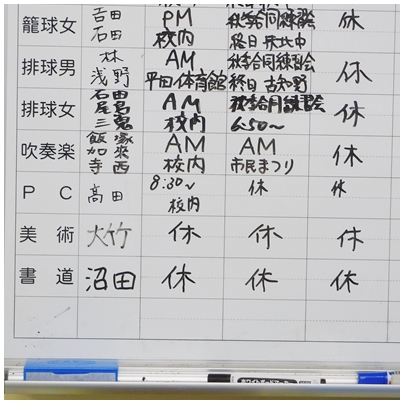 籠球女 吉田 石田 PM 校内 秋季合同練習会 終日 休
排球男 林 浅野 AM 平田体育館 秋季合同練習会 終日 古知野 休
排球女 石田 尾島 三鬼 AM 校内 秋季合同練習会 6:50〜 休
吹奏楽 飯塚 加来 寺西 AM 校内 AM 市民まつり 休
PC 高田 8:30〜 校内 休 休
美術 大竹 休 休 休
書道 沼田 休 休 休